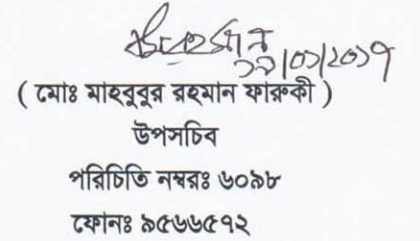 ( মোঃ মাহবুবুর রহমান ফারুকী )
উপসচিব
পরিচিতি নম্বরঃ ৬০৯৮
ফোনঃ ৯৫৬৬৫৭২